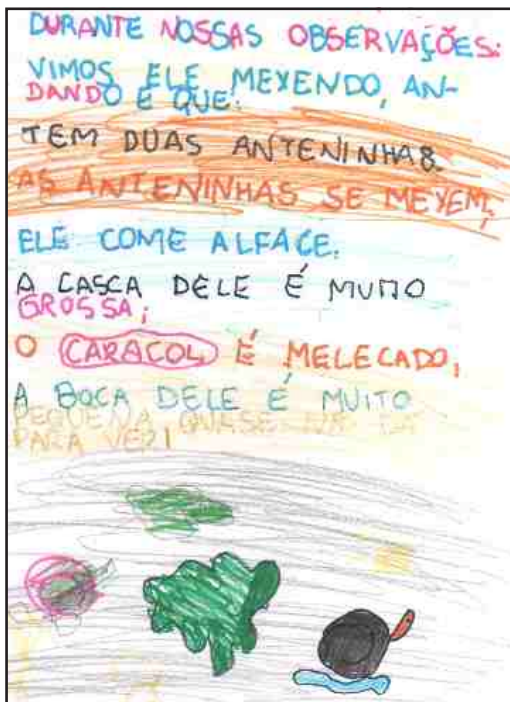 DURANTE NOSSAS OBSERVAÇÕES:
VIMOS ELE MEXENDO, AN-
DANDO E QUE:
TEM DUAS ANTENINHAS.
AS ANTENINHAS SE MEXEM,
ELE COME ALFACE.
A CASCA DELE É MUITO
GROSSA;
O CARACOL É MELECADO,
A BOCA DELE É MUITO
PEQUENA QUASE NÃO DÁ
PARA VER!